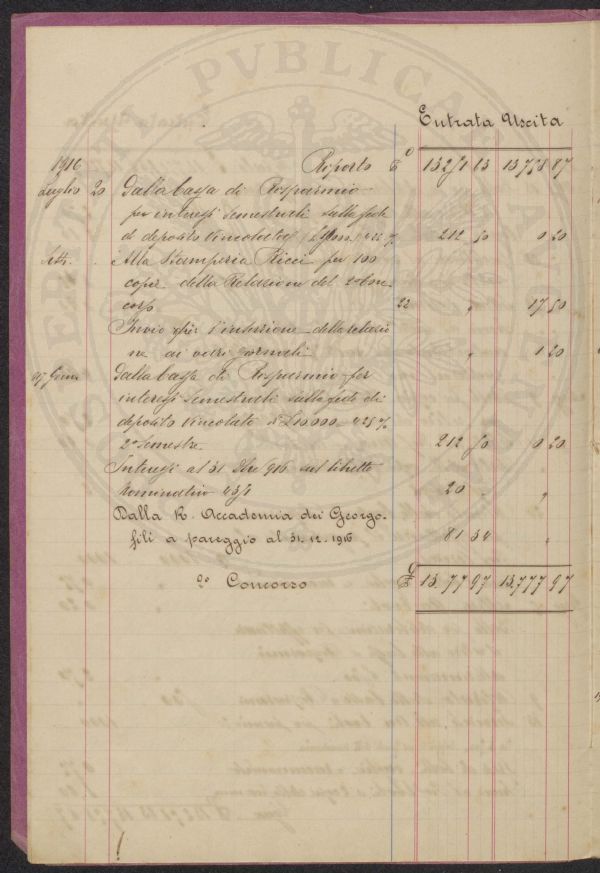 Entrata Uscita
1916 Riporto £ 13251 63 13758 87
Luglio 20 Dalla Cassa di Risparmio
per interessi semestrali sulla fede
di deposito vincolato 212 50 0 20
Alla Stamperia Ricci per 100
copie della Relazione del 2º Con-
corso 22 " 17 50
Invio per l'inserzione della relazio
ne ai vari giornali " 1 20
Dalla Cassa di Risparmio per
interessi semestrali sulla fede di
deposito vincolato di £ 10.000 4.25 %
2º Semestre 212 50 0 20
Interessi al 31 Dbre 916 sul libretto
nominativo 20 - "
Dalla R. Accademia dei Georgo-
fili a pareggio al 31.12.1916 81 34 "
2º Concorso £ 13.777 97 13.777 97